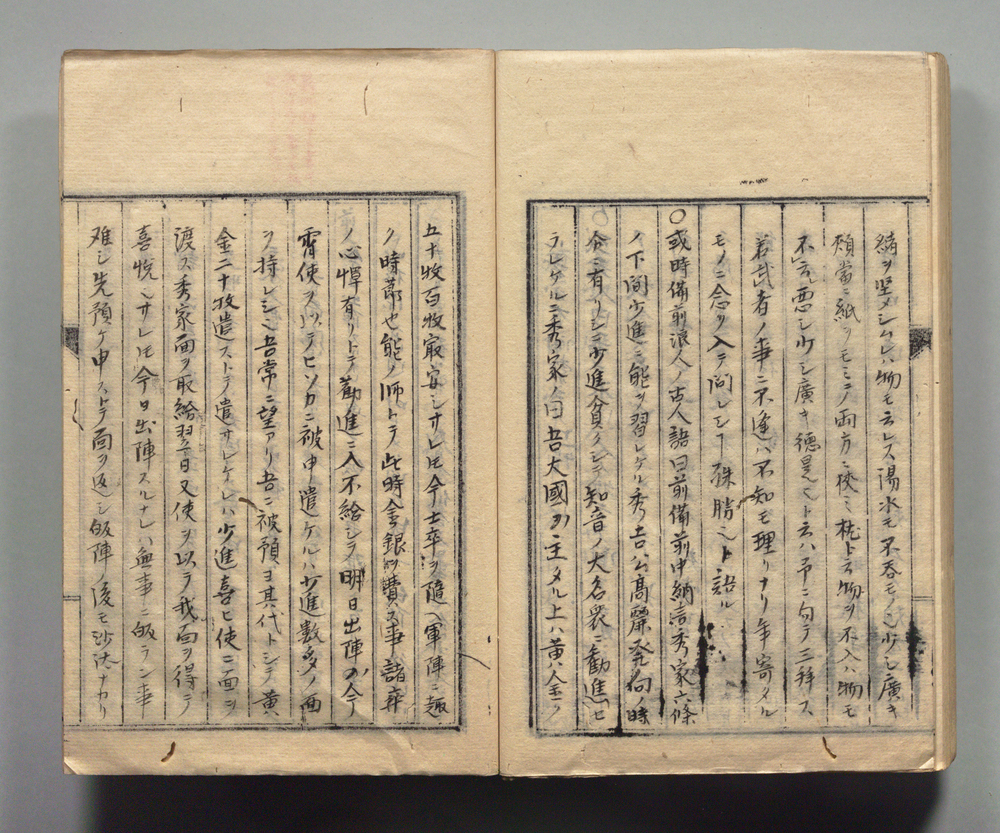 緒ヲ堅メシムレハ物モ云レス湯水モ不呑モノ也少シ廣キ
頬當ニ紙ヲモミ両方ニ挟ミ枕ト云物ヲ不入ハ物モ
不云悪シ少シ廣キ徳是ヘト云ハ弟ニ句テ三拝ス
若武者ノ事ニ不逢ハ不知モ理リナリ年寄メル
モノニ念ヲ入テ問レシヿ殊勝也ト語ル
○或時備前浪人ノ古人語曰前備前中納言秀家六條
ノ下間少進ニ能ヲ習レケル秀吉公高麗発向ノ時
命ニ有リシニ少進貧クシテ知音ノ大名衆ニ勧進セ
ラレケルニ秀家ノ曰吾大國ノ主メル上ハ黄金ヲ
五十枚百枚最安シサレ𪜈今士卒ヲ隨ヘ軍陣ニ趣
ク時節也能ノ師トテ此時金銀ヲ費ス事諸卒
ノ心憚有リトテ勧進ニ入不給シテ明日出陣ノ今
宵使ヲ以テヒソカニ被申遣ケルハ少進数多ノ面
ヲ持レシ也吾常ニ望アリ吾ニ被預ヨ其代トシテ黄
金二十枚遣ストテ遣サレケレハ少進喜ヒ使ニ面ヲ
渡ス秀家面ヲ取給翌日又使ヲ以テ我面ヲ得テ
喜悦也サレ𪜈今日出陣スルナレハ無事ニ皈ラン事
難シ先預ケ申ストテ面ヲ返シ皈陣ノ後モ沙汰ナカリ